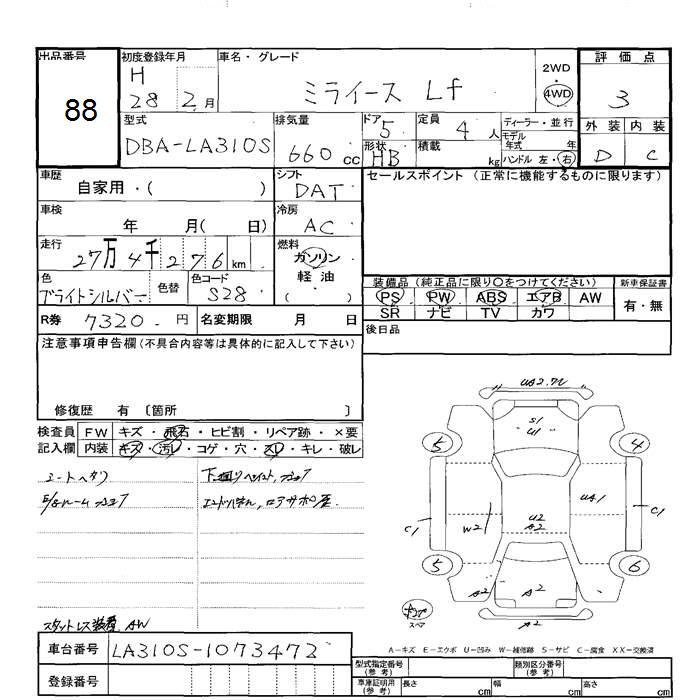 出品番号
88
初度登録年月
H 28 2月
車名・グレード
ミライース Lf
2WD
4WD
評価点
3
外装 内装
D C
型式
DBA-LA310S
排気量
660 cc
ドア 5
形状 HB
定員 4 人
積載 kg
ディーラー・並行
モデル年式 年
ハンドル 左・右
車歴
自家用・( )
シフト
DAT
セールスポイント (正常に機能するものに限ります)
車検
年 月( 日)
冷房
AC
走行
27万4千276km
燃料
ガソリン
軽油
( )
色
ブライトシルバー
色替
色コード
S28
装備品 (純正品に限り〇をつけてください)
PS PW ABS エアB AW
SR ナビ TV カワ
新車保証書
有・無
R券 7320 円
名変期限 月 日
後日品
注意事項申告欄(不具合内容等は具体的に記入して下さい)
修復歴 有〔箇所 〕
検査員記入欄
FW キズ・飛石・ヒビ割・リペア跡・×要
内装 キズ・汚レ・コゲ・穴・スレ・キレ・破レ
シートヘタリ
スタットレス装着 AW
UA2.W
S1
U1
5
4
C1
W2
U2
A2
UA1
C1
5
6
A2
A2
A2
A-キズ E-エクボ U-凹み W-補修跡 S-サビ C-腐食 XX-交換済
車台番号
LA310S-1073472
登録番号
型式指定番号(参考)
類別区分番号(参考)
車庫証明用(参考)
長さ cm 幅 cm 高さ cm